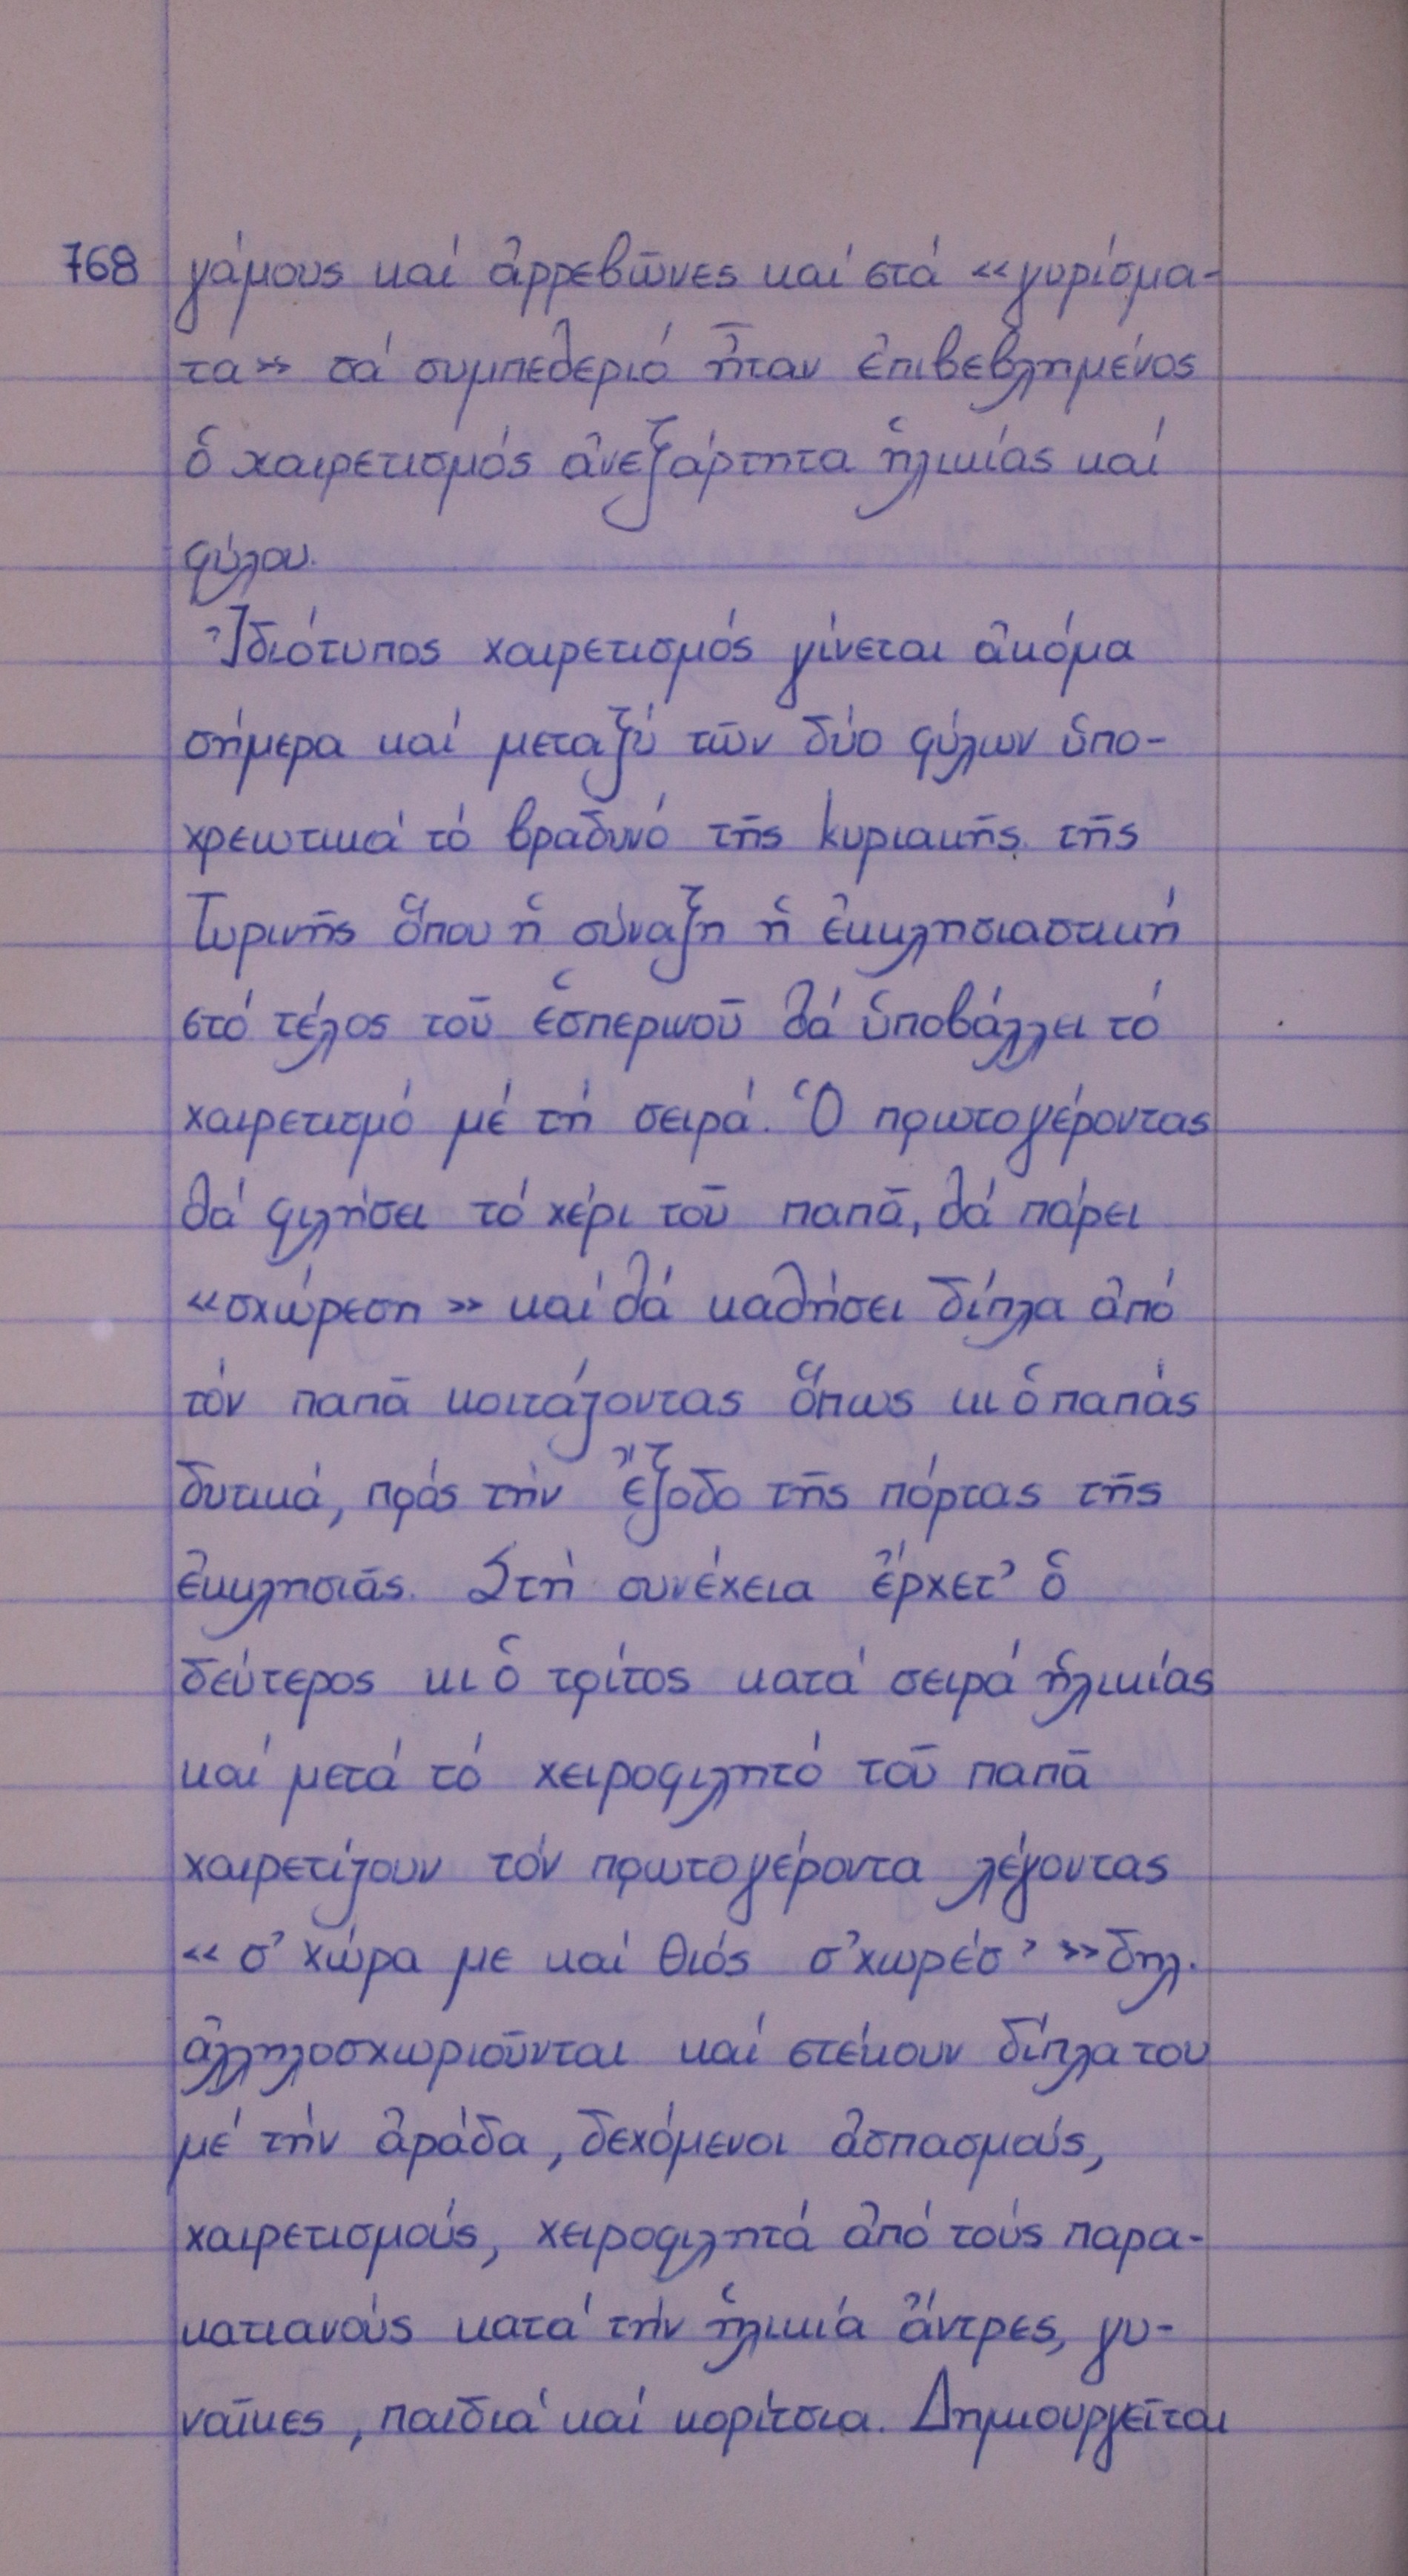 768 γάμους καί ἀρρεβῶνες καί στά «γυρίσμα-
τα» τά συμπεθεριό ἦταν ἐπιβεβλημένος
ὁ χαιρετισμός ἀνεξάρτητα ἡλικίας καί
φύλου.
Ἰδιότυπος χαιρετισμός γίνεται ἀκόμα
σήμερα καί μεταξύ τῶν δύο φύλων ὑπο-
χρεωτικά τό βραδυνό τῆς κυριακῆς τῆς
Τυρινῆς ὅπου ἡ σύναξη ἡ ἐκκλησιαστική
στό τέλος τοῦ ἑσπερινοῦ θά ὑποβάλλει τό
χαιρετισμό μέ τή σειρά. Ὁ πρωτογέροντας
θά φιλήσει τό χέρι τοῦ παπᾶ, θά πάρει
«σχώρεση» καί θά καθήσει δίπλα ἀπό
τόν παπᾶ κοιτάζοντας ὅπως κι ὁ παπάς
δυτικά, πρός τήν ἔξοδο τῆς πόρτας τῆς
ἐκκλησιᾶς. Στή συνέχεια ἔρχετ' ὁ
δεύτερος κι ὁ τρίτος κατά σειρά ἡλικίας
καί μετά τό χειροφιλητό τοῦ παπᾶ
χαιρετίζουν τόν πρωτογέροντα λέγοντας
«σ' χώρα με καί θιός σ'χωρέσ'» δηλ.
ἀλληλοσχωριοῦνται καί στέκουν δίπλα του
μέ τήν ἀράδα, δεχόμενοι ἀσπασμούς,
χαιρετισμούς, χειροφιλητά ἀπό τούς παρα-
κατιανούς κατά τήν ἡλικία ἄντρες, γυ-
ναῖκες, παιδιά καί κορίτσια. Δημιουργεῖται